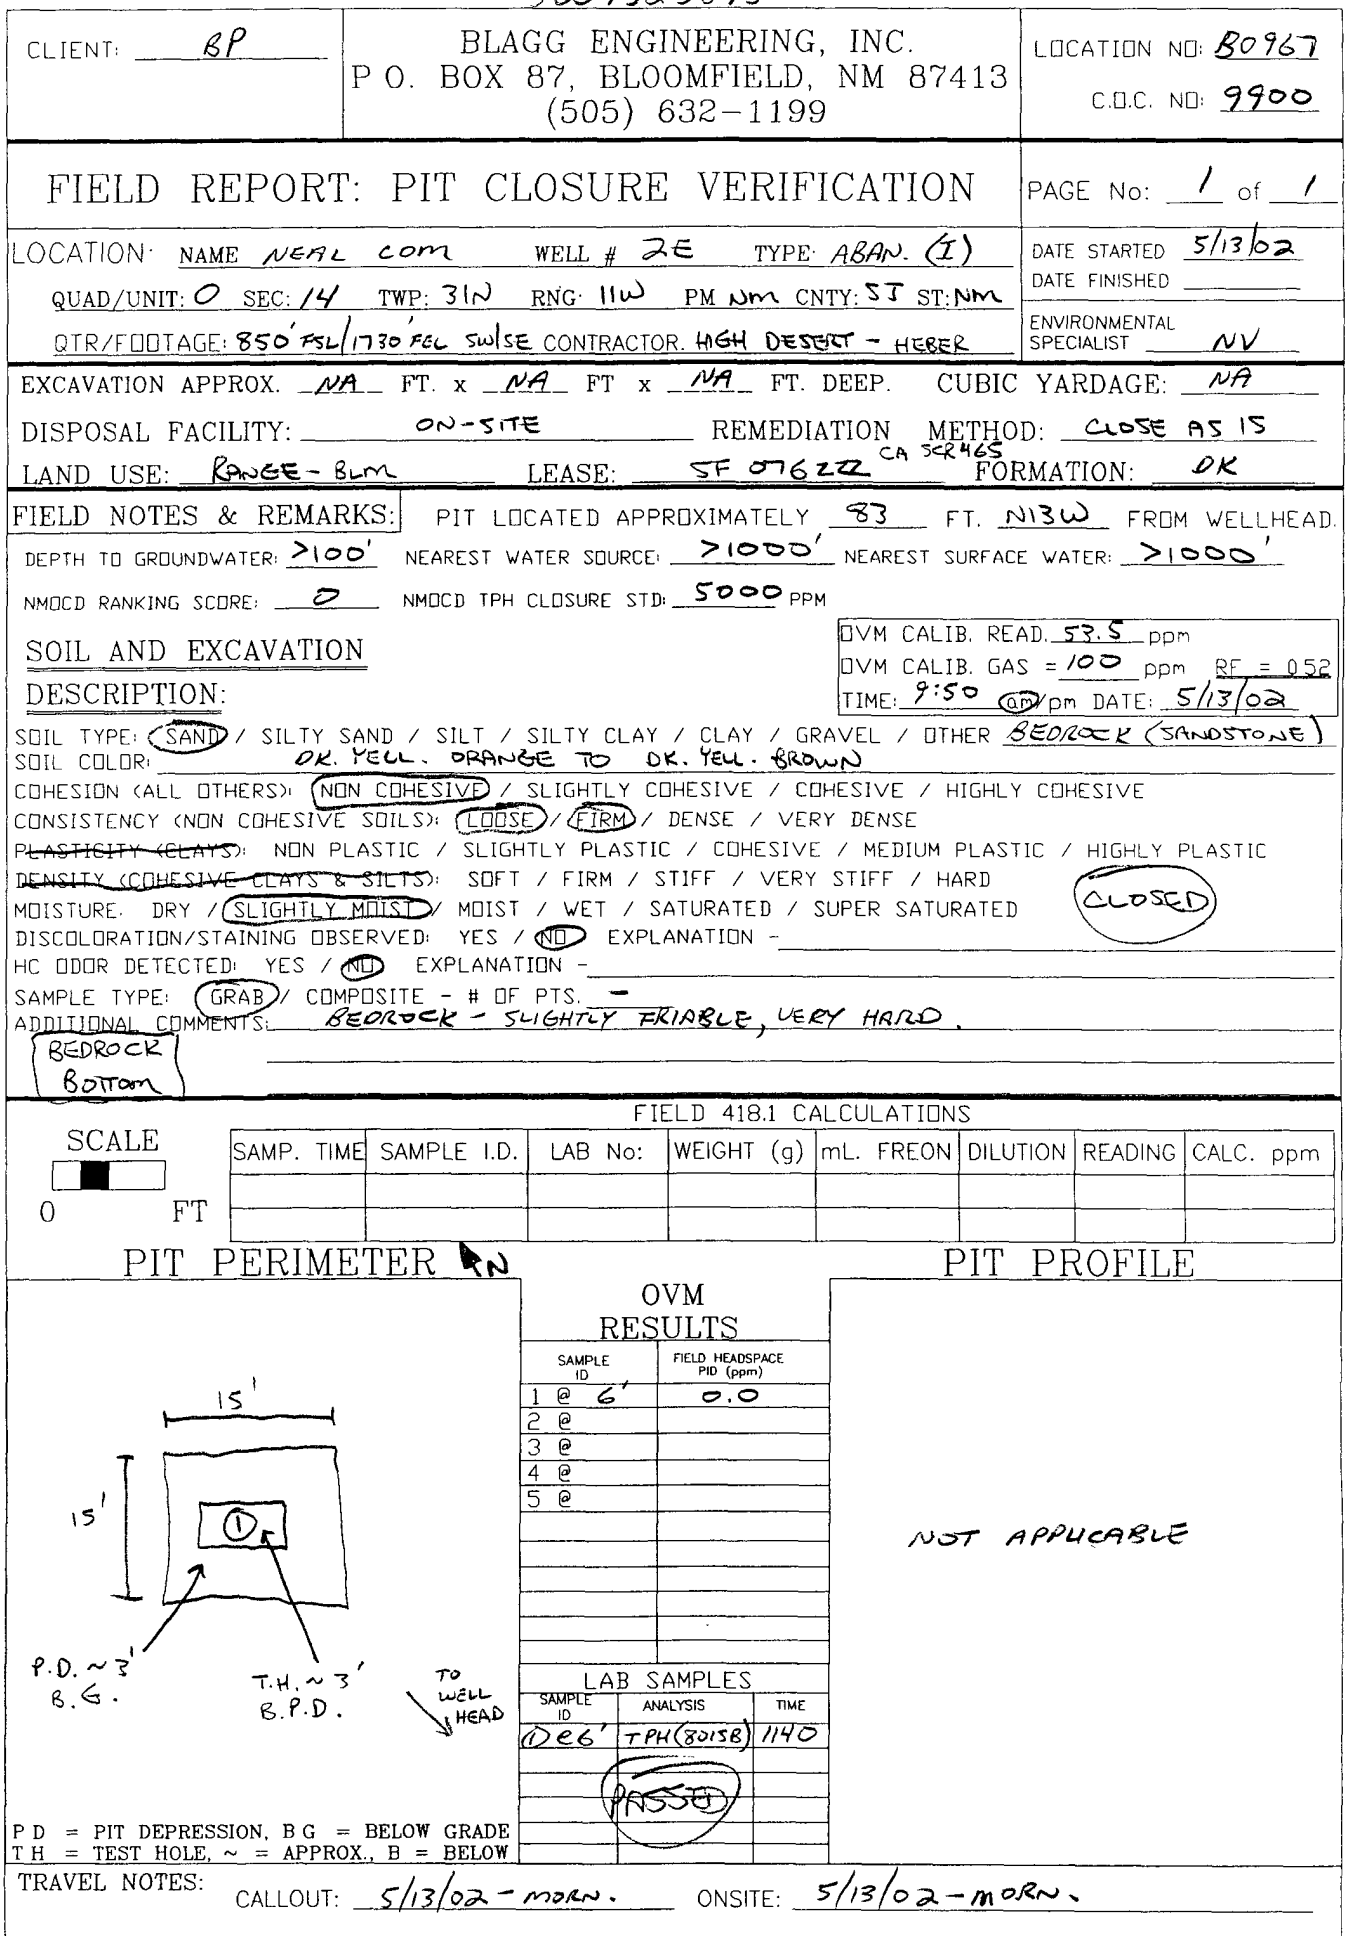 CLIENT: BP
BLAGG ENGINEERING, INC.
P O. BOX 87, BLOOMFIELD, NM 87413
(505) 632-1199
LOCATION NO: B0967
C.O.C. NO: 9900
FIELD REPORT: PIT CLOSURE VERIFICATION
PAGE No: 1 of 1
LOCATION: NAME NEAL COM WELL # 2E TYPE: ABAN. (I)
QUAD/UNIT: O SEC: 14 TWP: 31N RNG: 11W PM NM CNTY: SJ ST: NM
QTR/FOOTAGE: 850' FSL/1730' FEL SW/SE CONTRACTOR. HIGH DESERT - HEBER
DATE STARTED 5/13/02
DATE FINISHED
ENVIRONMENTAL
SPECIALIST NV
EXCAVATION APPROX. NA FT. x NA FT x NA FT. DEEP. CUBIC YARDAGE: NA
DISPOSAL FACILITY: ON-SITE REMEDIATION METHOD: CLOSE AS IS
LAND USE: RANGE - BLM LEASE: SF 076222 CA SCR465 FORMATION: DK
FIELD NOTES & REMARKS: PIT LOCATED APPROXIMATELY 83 FT. N13W FROM WELLHEAD.
DEPTH TO GROUNDWATER: >100' NEAREST WATER SOURCE: >1000' NEAREST SURFACE WATER: >1000'
NMOCD RANKING SCORE: 0 NMOCD TPH CLOSURE STD: 5000 PPM
SOIL AND EXCAVATION
DESCRIPTION:
OVM CALIB. READ. 53.5 ppm
OVM CALIB. GAS = 100 ppm RF = 0.52
TIME: 9:50 am/pm DATE: 5/13/02
SOIL TYPE: SAND / SILTY SAND / SILT / SILTY CLAY / CLAY / GRAVEL / OTHER BEDROCK (SANDSTONE)
SOIL COLOR: DK. YELL. ORANGE TO DK. YELL. BROWN
COHESION (ALL OTHERS): NON COHESIVE / SLIGHTLY COHESIVE / COHESIVE / HIGHLY COHESIVE
CONSISTENCY (NON COHESIVE SOILS): LOOSE / FIRM / DENSE / VERY DENSE
PLASTICITY (CLAYS): NON PLASTIC / SLIGHTLY PLASTIC / COHESIVE / MEDIUM PLASTIC / HIGHLY PLASTIC
DENSITY (COHESIVE CLAYS & SILTS): SOFT / FIRM / STIFF / VERY STIFF / HARD
MOISTURE. DRY / SLIGHTLY MOIST / MOIST / WET / SATURATED / SUPER SATURATED
CLOSED
DISCOLORATION/STAINING OBSERVED: YES / NO EXPLANATION -
HC ODOR DETECTED: YES / NO EXPLANATION -
SAMPLE TYPE: GRAB / COMPOSITE - # OF PTS. -
ADDITIONAL COMMENTS: BEDROCK - SLIGHTLY FRIABLE, VERY HARD.
BEDROCK
BOTTOM
FIELD 418.1 CALCULATIONS
SCALE
0 FT
SAMP. TIME SAMPLE I.D. LAB No: WEIGHT (g) mL. FREON DILUTION READING CALC. ppm
PIT PERIMETER N
PIT PROFILE
OVM
RESULTS
SAMPLE ID FIELD HEADSPACE PID (ppm)
1 @ 6' 0.0
2 @
3 @
4 @
5 @
15'
15'
1
NOT APPLICABLE
P.D. ~ 3'
B.G.
T.H. ~ 3'
B.P.D.
TO
WELL
HEAD
LAB SAMPLES
SAMPLE ID ANALYSIS TIME
1 @ 6' TPH (8015B) 1140
PASSED
P D = PIT DEPRESSION, B G = BELOW GRADE
T H = TEST HOLE, ~ = APPROX., B = BELOW
TRAVEL NOTES: CALLOUT: 5/13/02 - MORN. ONSITE: 5/13/02 - MORN.